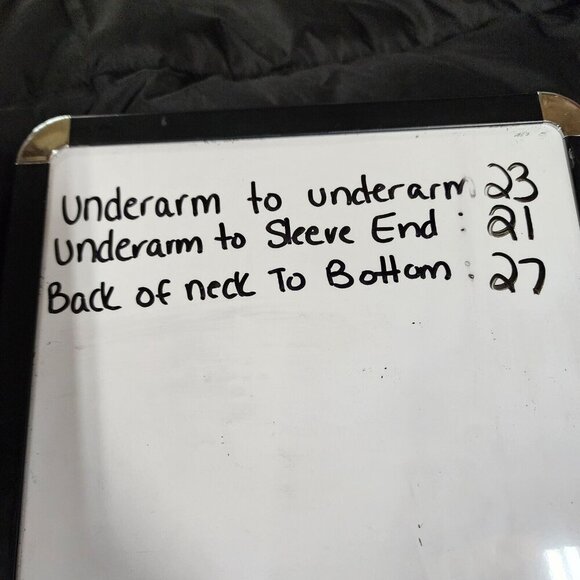 Underarm to underarm 23
Underarm to Sleeve End : 21
Back of neck To Bottom : 27